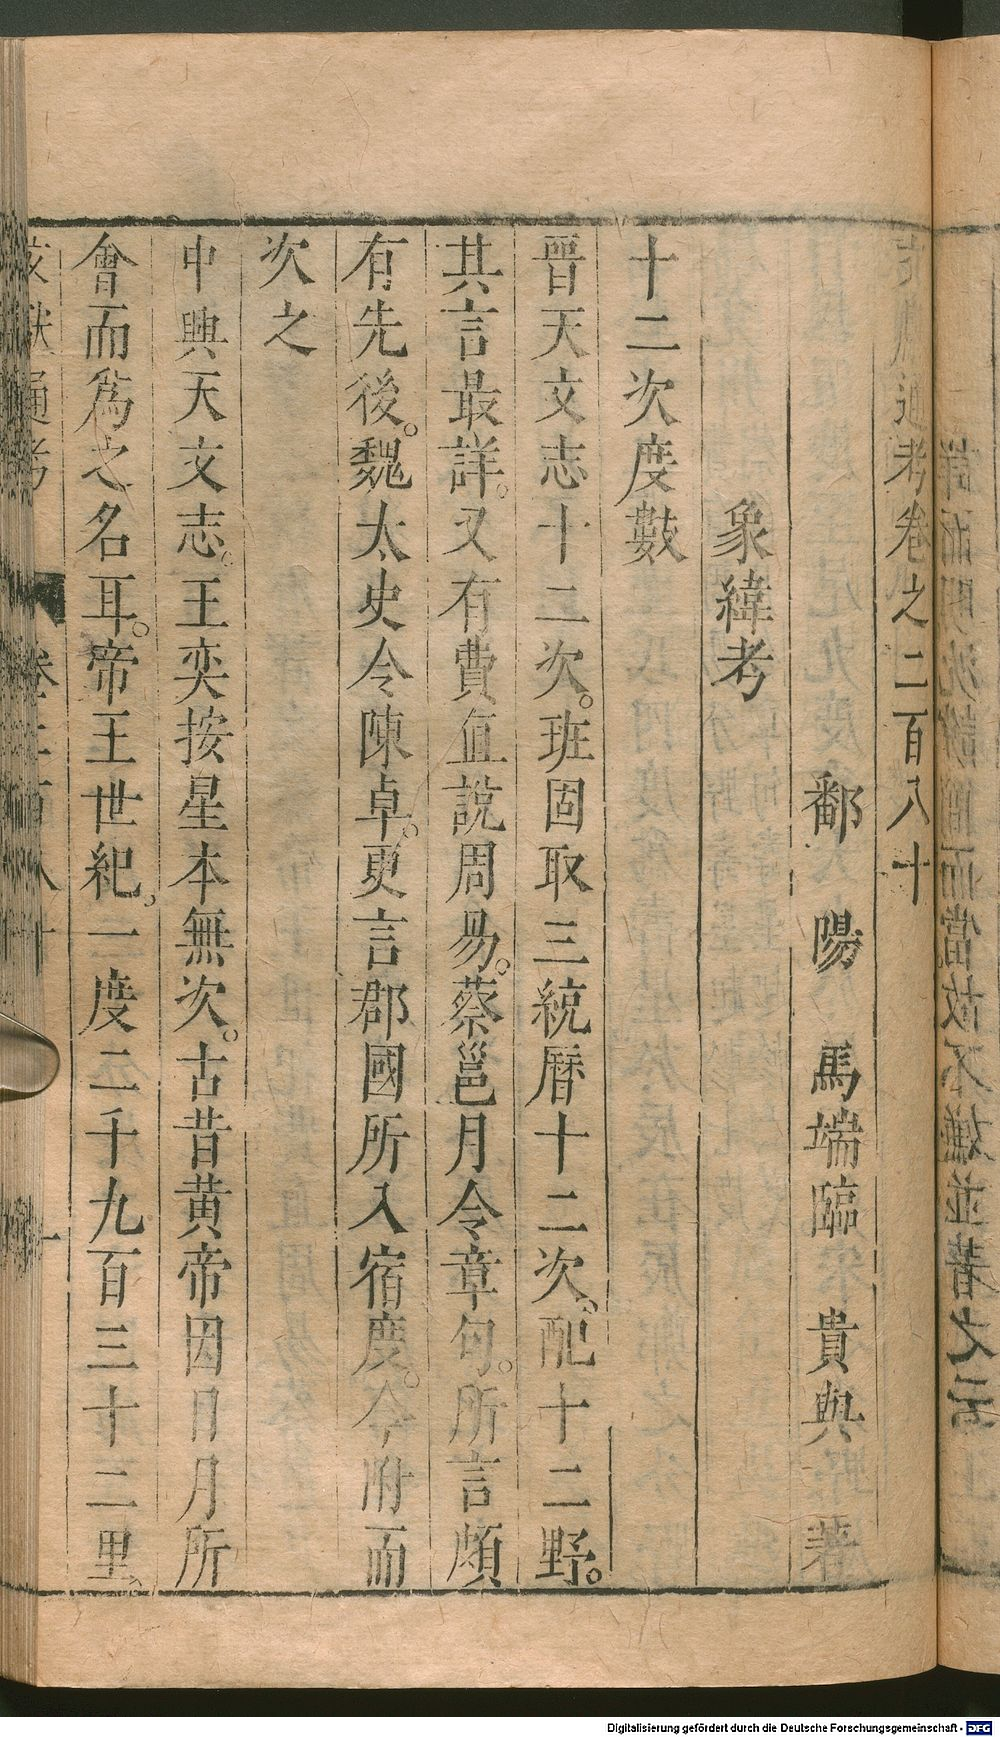 文獻通考卷之二百八十
鄱陽馬端臨貴與著
象緯考
十二次度數
晉天文志十二次。班固取三統曆十二次。配十二野。
其言最詳。又有費直說周易。蔡邕月令章句。所言頗
有先後。魏太史令陳卓。更言郡國所入宿度。今附而
次之
中興天文志。王奕按星本無次。古昔黃帝因日月所
會而為之名耳。帝王世紀。一度二千九百三十二里。
文獻通考 卷二百八十 一
Digitalisierung gefördert durch die Deutsche Forschungsgemeinschaft - DFG